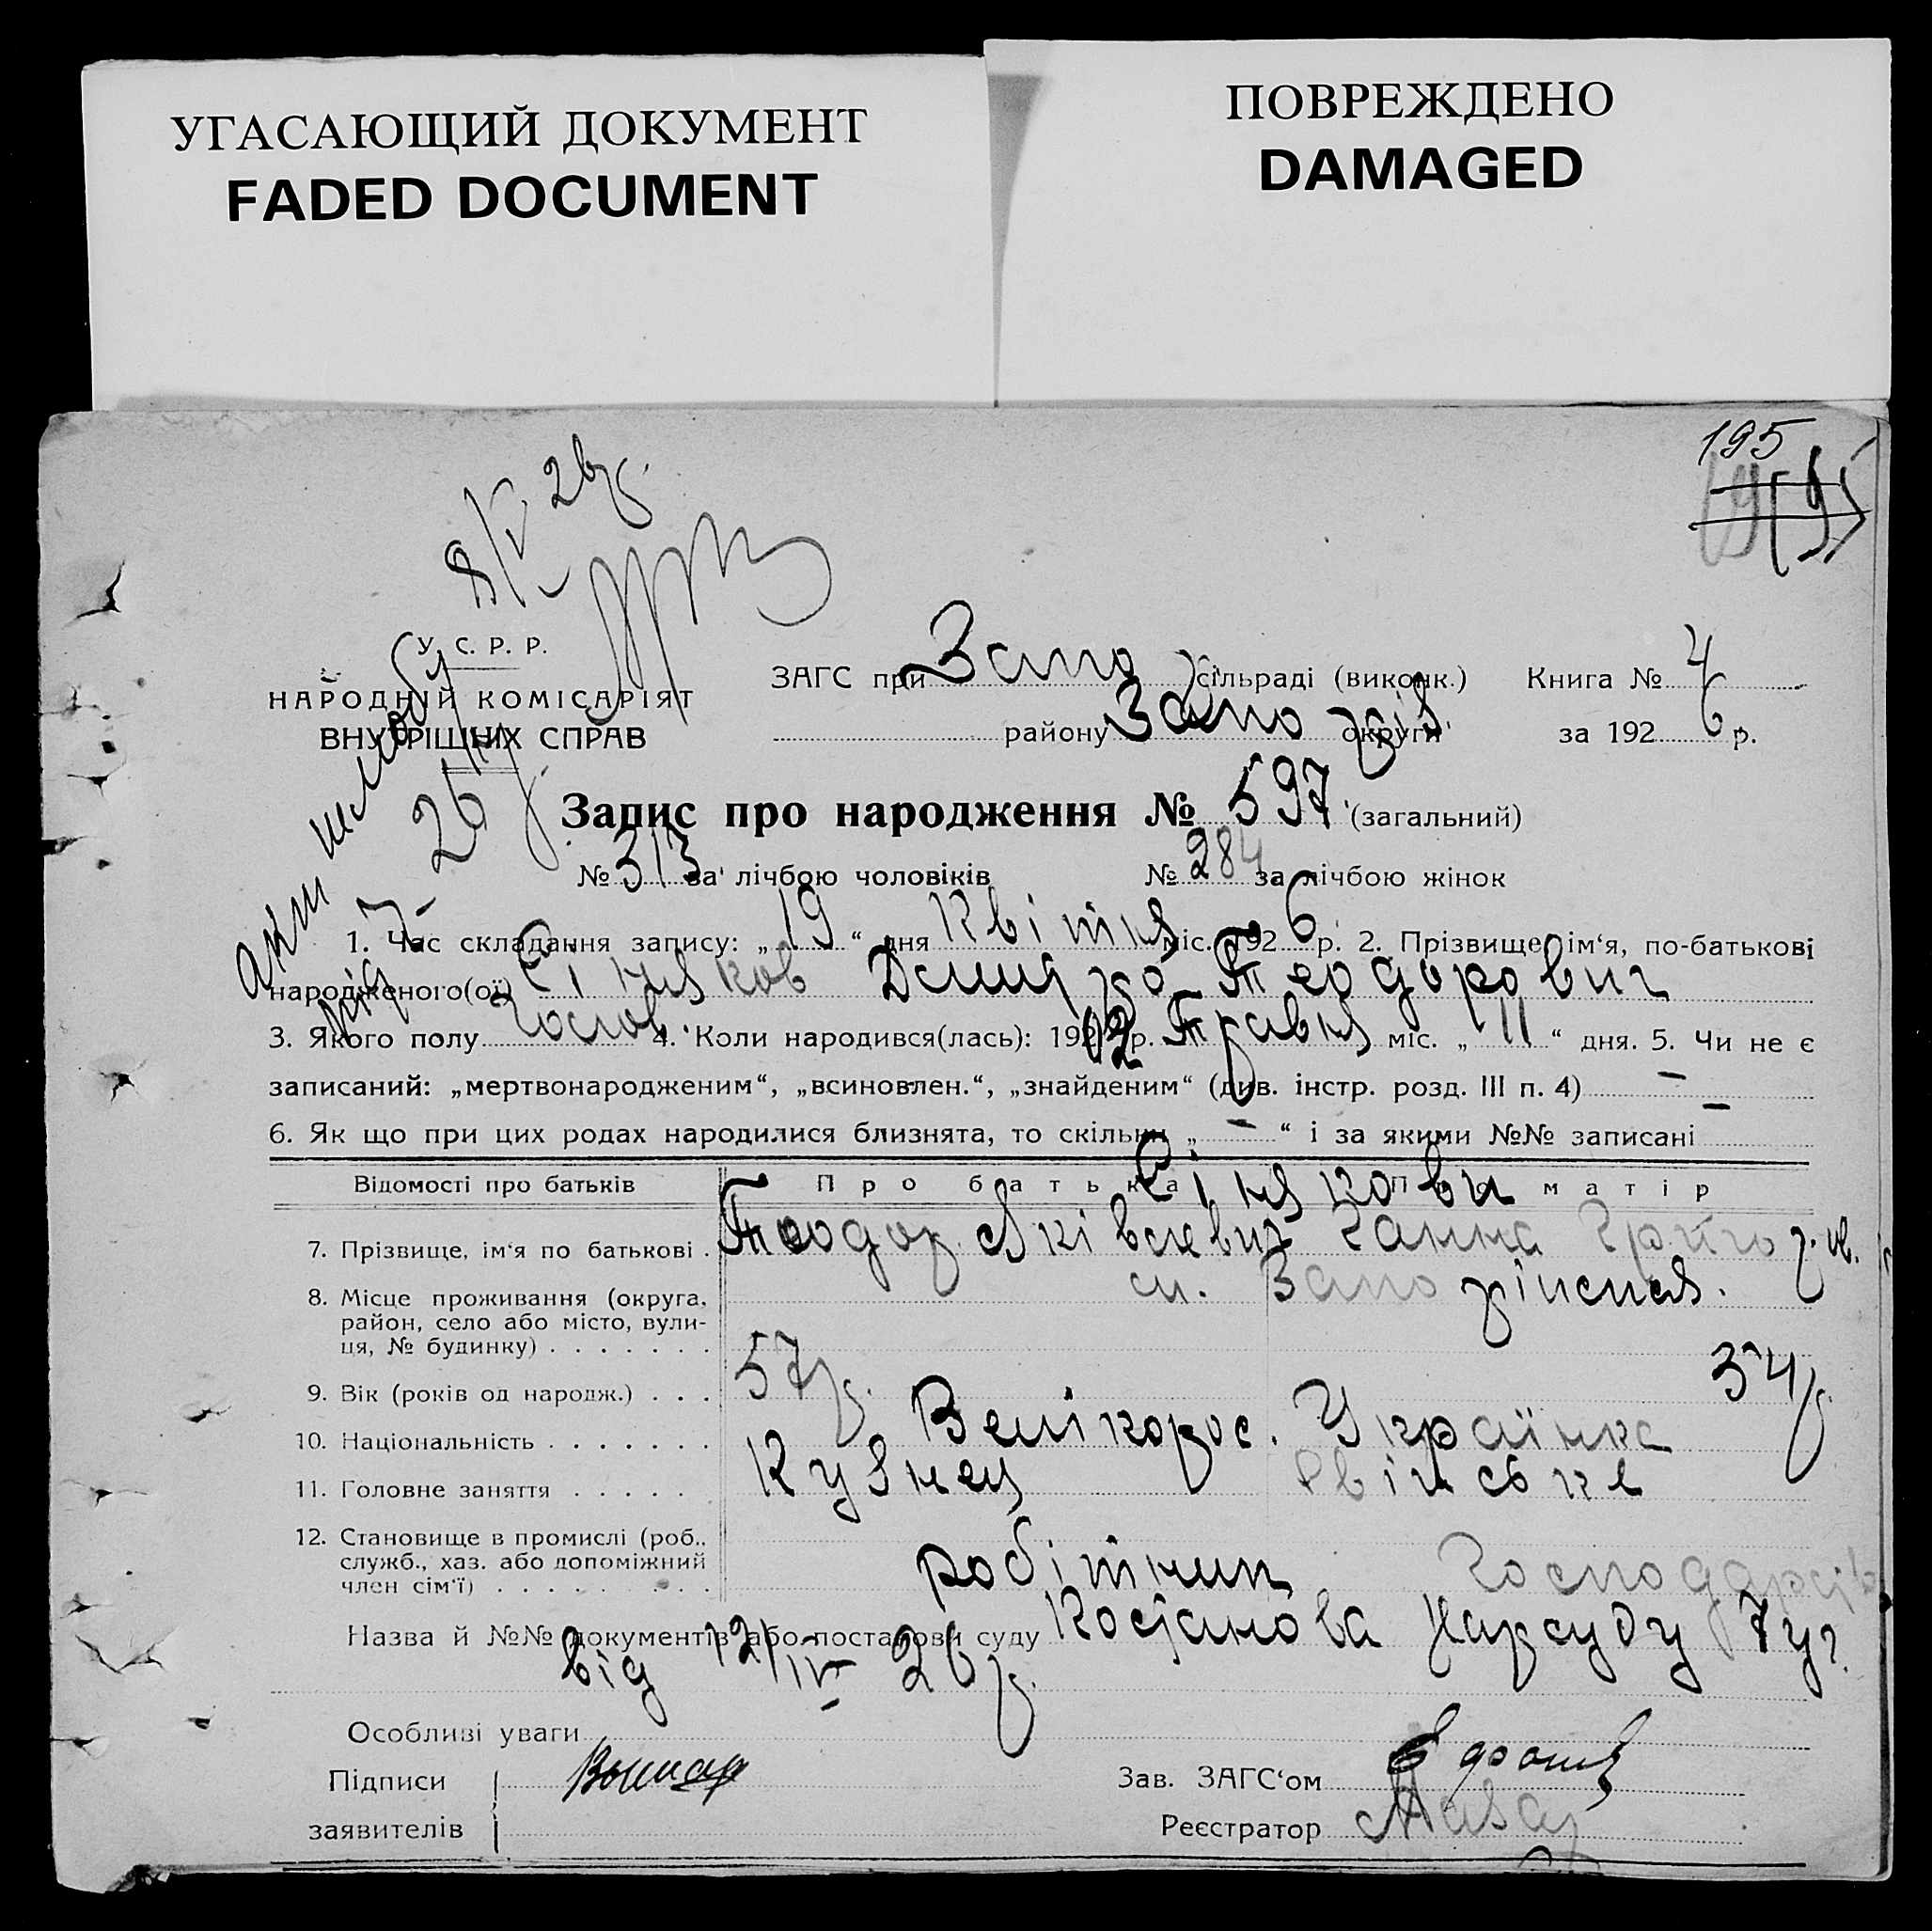 УГАСАЮЩИЙ ДОКУМЕНТ
FADED DOCUMENT
ПОВРЕЖДЕНО
DAMAGED
195
8/V 26р.
У. С. Р. Р.
НАРОДНІЙ КОМІСАРІЯТ
ВНУТРІШНІХ СПРАВ
ЗАГС при Запо сільраді (виконк.) Книга № 4
району Запоріз. округи за 1926 р.
Запис про народження № 597 (загальний)
№ 313 за лічбою чоловіків № 284 за лічбою жінок
1. Час складання запису: „19“ дня Квітня міс. 1926 р. 2. Прізвище, ім‘я, по-батькові
народженого(ої) Сіняков Дмитро Теодорович
3. Якого полу Чолов. 4. Коли народився(лась): 19 р. Травня міс. „11“ дня. 5. Чи не є
записаний: „мертвонародженим“, „всиновлен.“, „знайденим“ (див. інстр. розд. III п. 4) —
6. Як що при цих родах народилися близнята, то скільки „—“ і за якими №№ записані —
Відомості про батьків Про батька Про матір
Сінякови
7. Прізвище, ім‘я по батькові . Теодор Яківлевич Ганна Григор.
8. Місце проживання (округа, район, село або місто, вулиця, № будинку) . . . . . . . м. Запоріжжя.
9. Вік (років од народж.) . . . 57р. 34р.
10. Національність . . . . . . . Велікорос. Українка
11. Головне заняття . . . . . . Кузнец
12. Становище в промислі (роб., служб., хаз. або допоміжний член сім‘ї) . . . . . . . . . робітник
Назва й №№ документів або постанови суду Нарсуду 7 уч.
від 12/IV 26р.
Особливі уваги
Підписи
заявителів
Зав. ЗАГС‘ом
Реєстратор
акт шлюбу
від 7
26р.